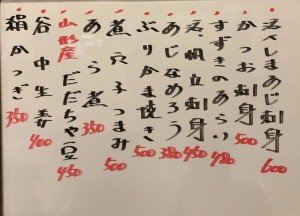 活〆しまあじ刺身 600
かつお刺身 500
すずきのあらい 480
活帆立刺身 450
あじなめろう 380
ぶりかま焼き 500
煮穴子つまみ 500
あら煮 350
山形産だだちゃ豆 450
谷中生姜 400
絹かつぎ 350